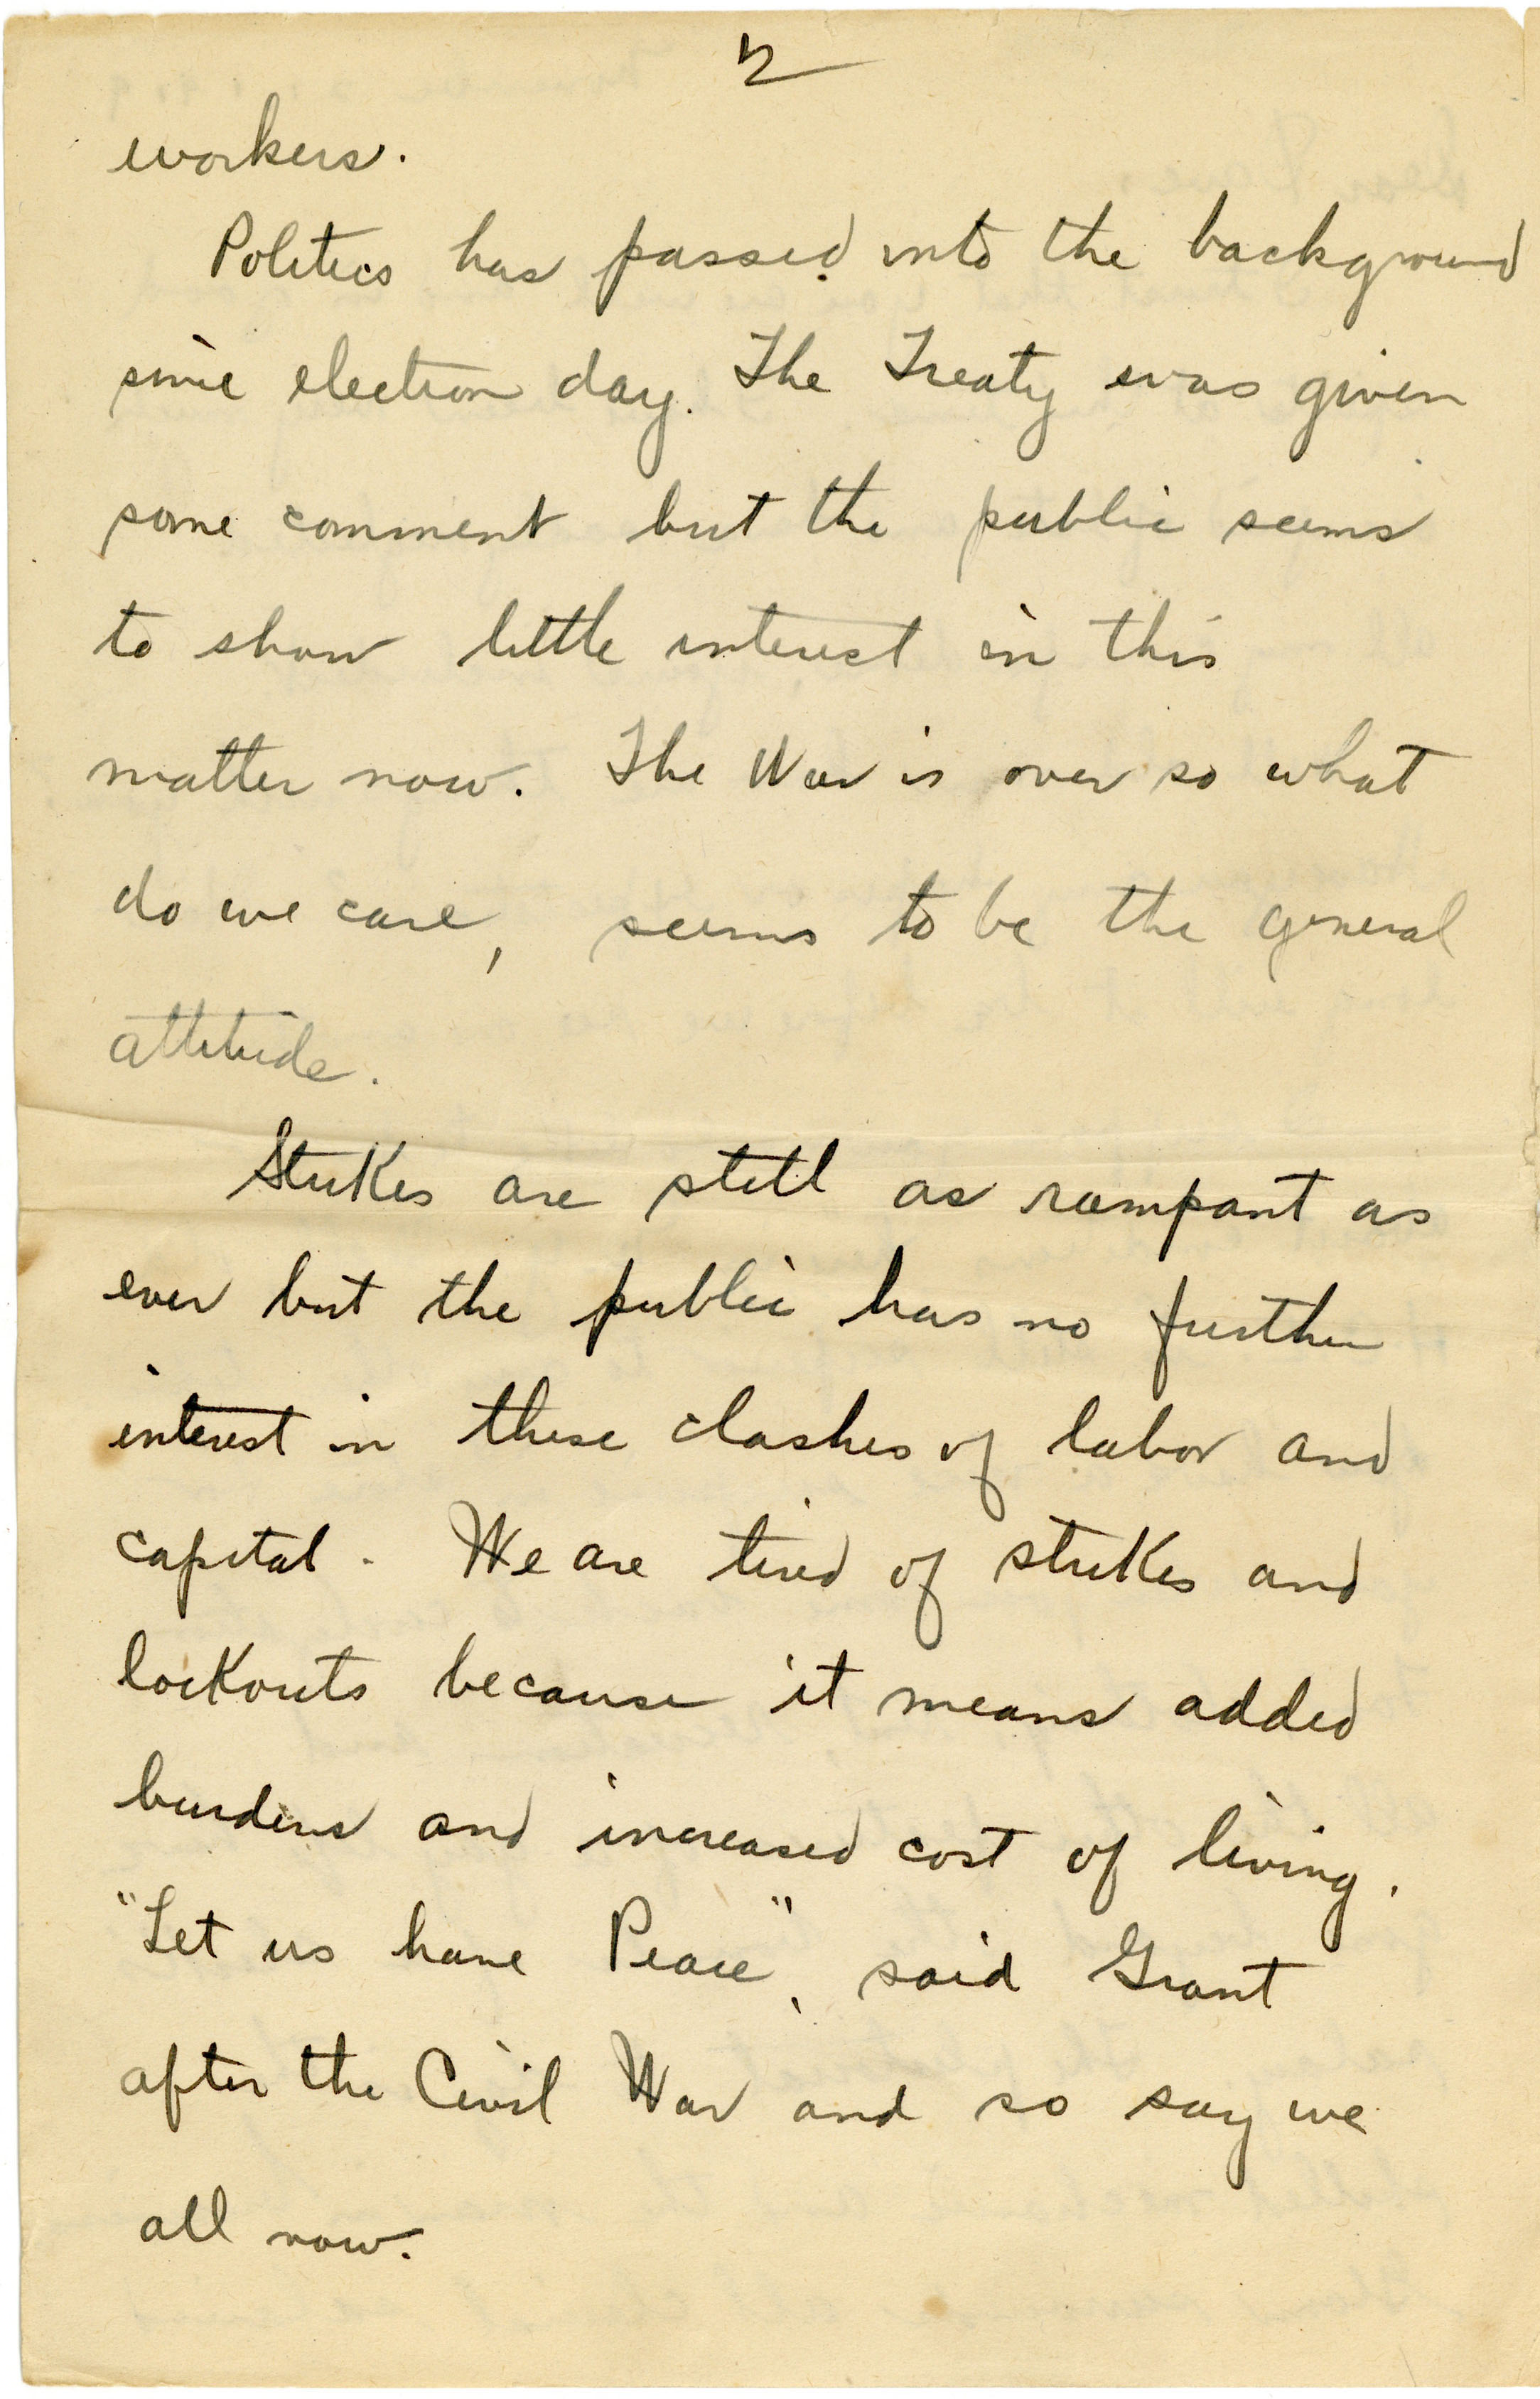 2
workers.
Politics has passed into the background
since election day. The Treaty was given
some comment but the public seems
to show little interest in this
matter now. The War is over so what
do we care, seems to be the general
attitude.
Strikes are still as rampant as
ever but the public has no further
interest in these clashes of labor and
capital. We are tired of strikes and
lockouts because it means added
burdens and increased cost of living.
"Let us have Peace", said Grant
after the Civil War and so say we
all now.